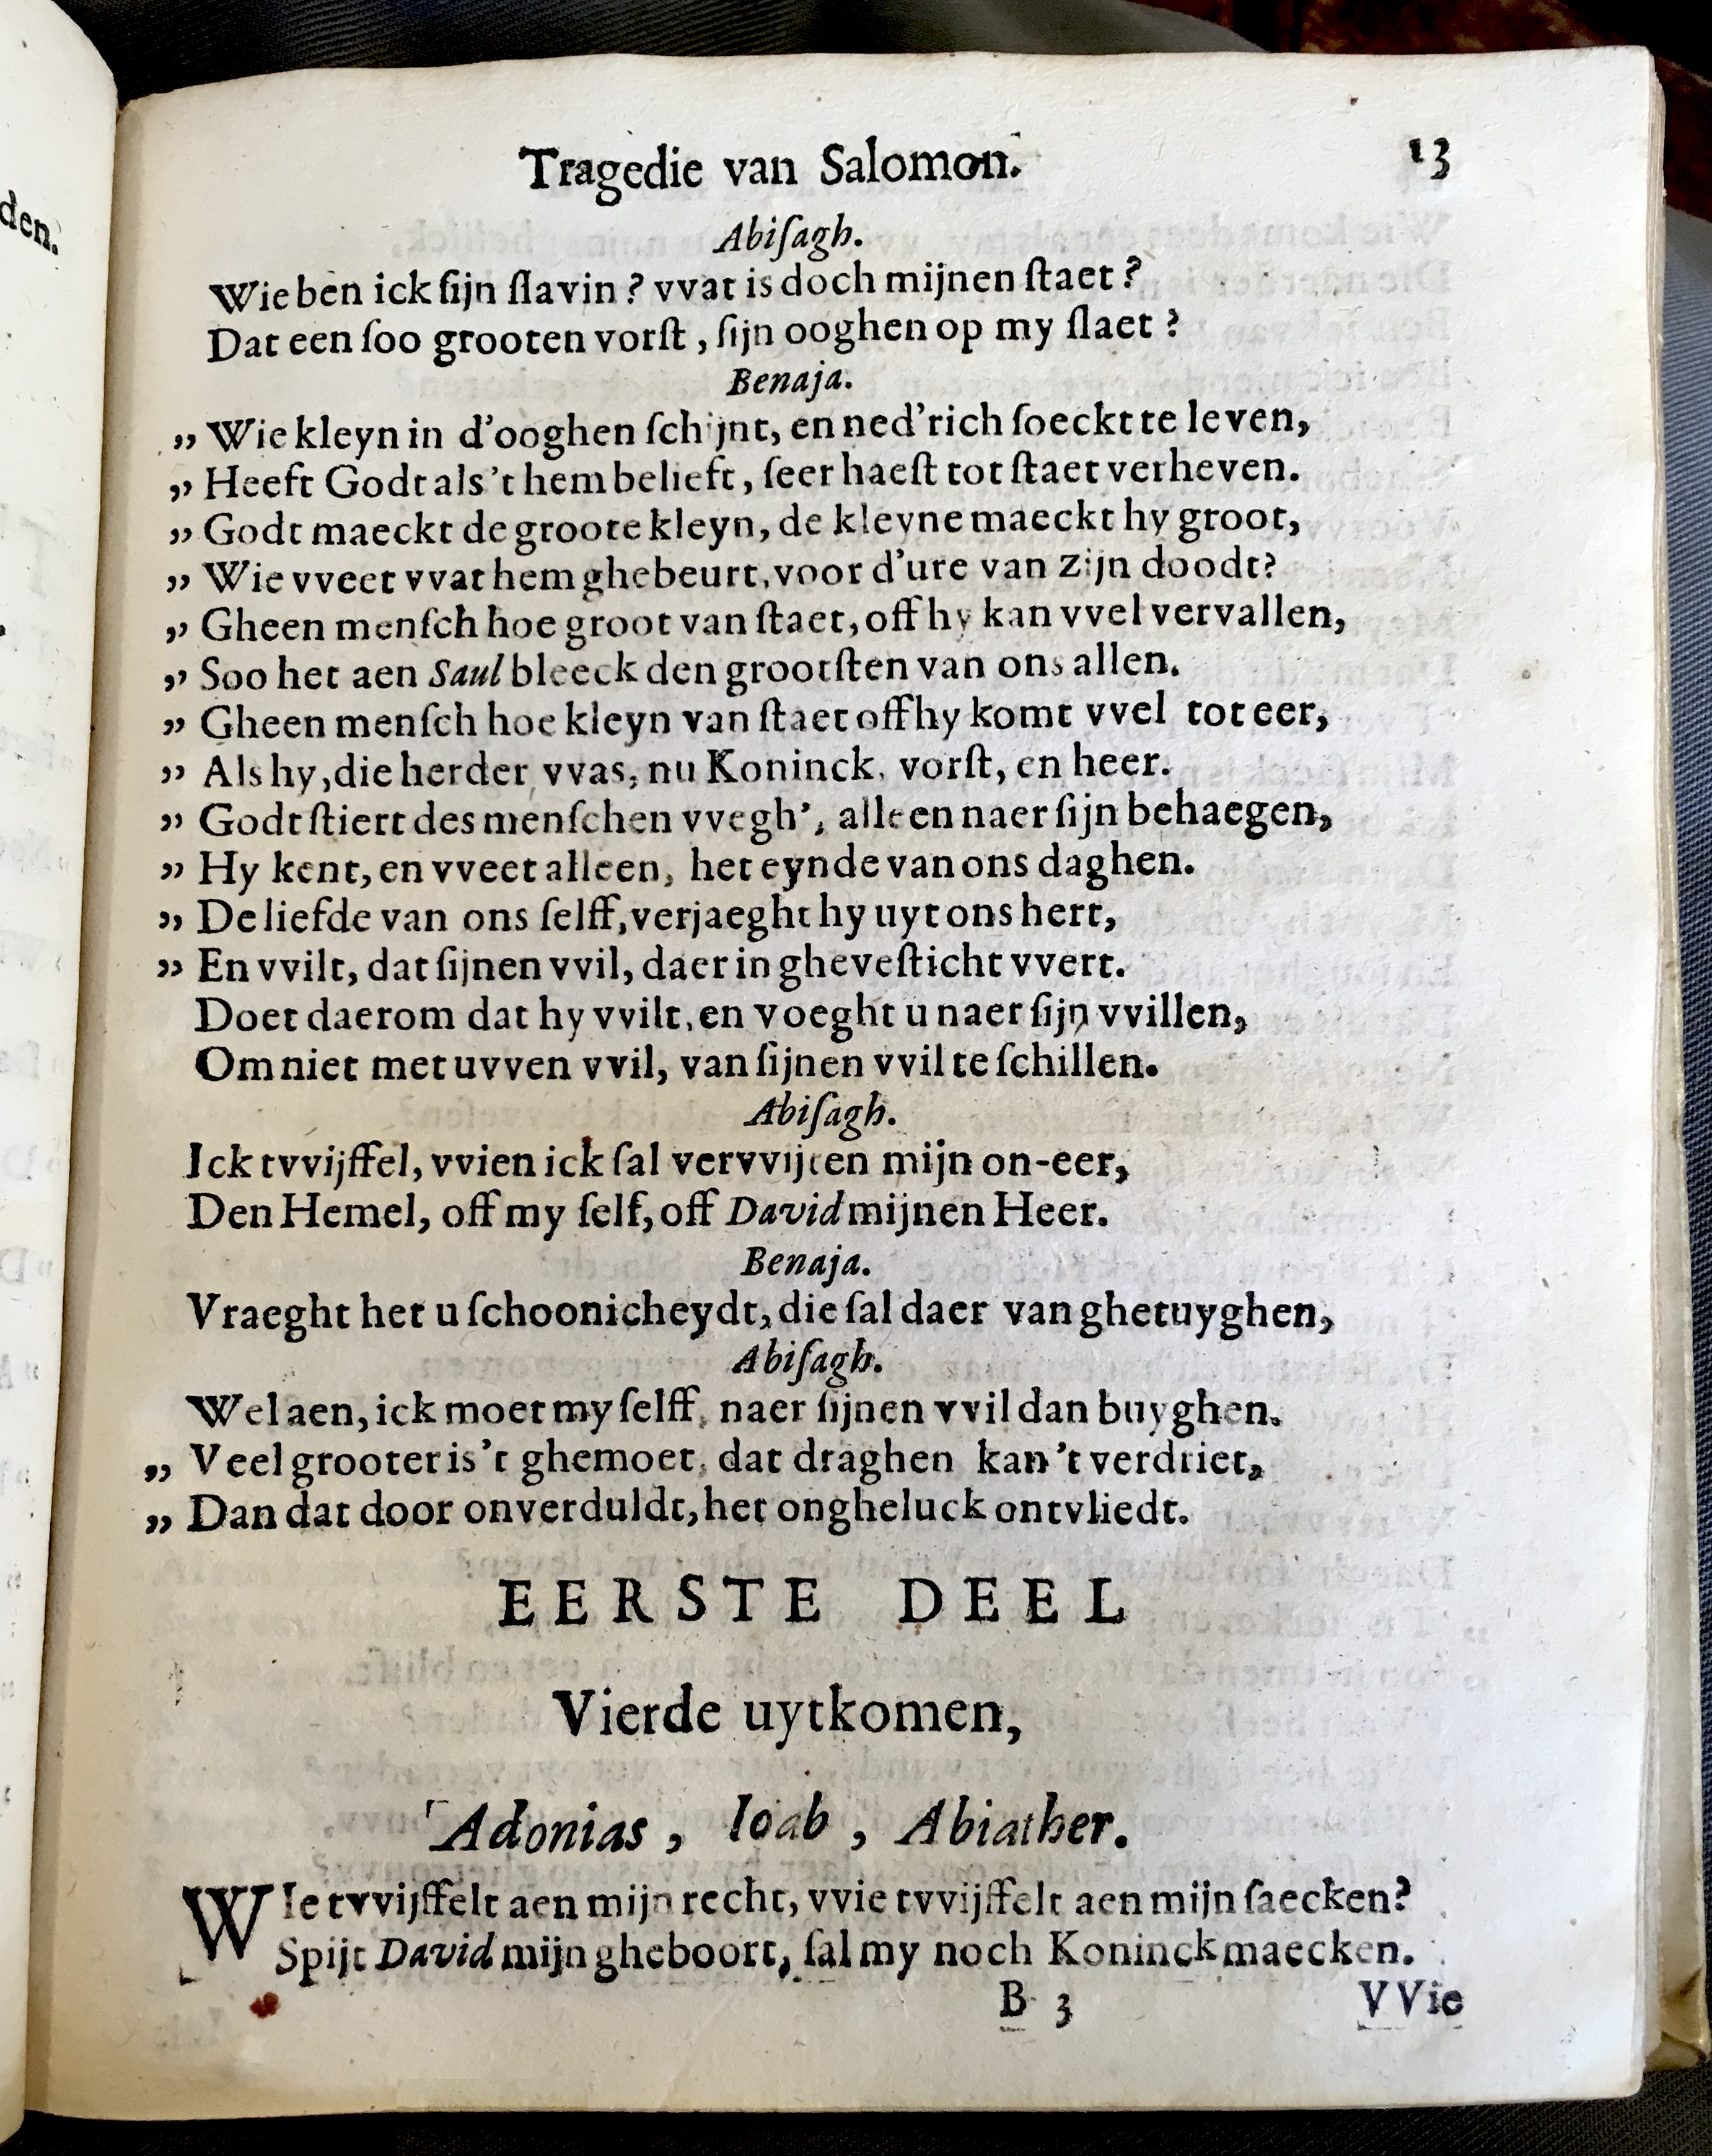 den.
Tragedie van Salomon. 13
Abiſagh.
Wie ben ick ſijn ſlavin? vvat is doch mijnen ſtaet?
Dat een ſoo grooten vorſt, ſijn ooghen op my ſlaet?
Benaja.
„ Wie kleyn in d'ooghen ſchijnt, en ned'rich ſoeckt te leven,
„ Heeft Godt als 't hem belieft, ſeer haeſt tot ſtaet verheven.
„ Godt maeckt de groote kleyn, de kleyne maeckt hy groot,
„ Wie vveet vvat hem ghebeurt, voor d'ure van zijn doodt?
„ Gheen menſch hoe groot van ſtaet, off hy kan vvel vervallen,
„ Soo het aen Saul bleeck den grootſten van ons allen.
„ Gheen menſch hoe kleyn van ſtaet off hy komt vvel tot eer,
„ Als hy, die herder vvas, nu Koninck, vorſt, en heer.
„ Godt ſtiert des menſchen vvegh', alleen naer ſijn behaegen,
„ Hy kent, en vveet alleen, het eynde van ons daghen.
„ De liefde van ons ſelff, verjaeght hy uyt ons hert,
„ En vvilt, dat ſijnen vvil, daer in gheveſticht vvert.
Doet daerom dat hy vvilt, en voeght u naer ſijn vvillen,
Om niet met uvven vvil, van ſijnen vvil te ſchillen.
Abiſagh.
Ick tvvijffel, vvien ick ſal vervvijten mijn on-eer,
Den Hemel, off my ſelf, off David mijnen Heer.
Benaja.
Vraeght het u ſchoonicheydt, die ſal daer van ghetuyghen,
Abiſagh.
Wel aen, ick moet my ſelff, naer ſijnen vvil dan buyghen.
„ Veel grooter is 't ghemoet, dat draghen kan 't verdriet,
„ Dan dat door onverduldt, het ongheluck ontvliedt.
EERSTE DEEL
Vierde uytkomen,
Adonias, Ioab, Abiather.
WIe tvvijffelt aen mijn recht, vvie tvvijffelt aen mijn ſaecken?
Spijt David mijn gheboort, ſal my noch Koninck maecken.
B 3 VVie